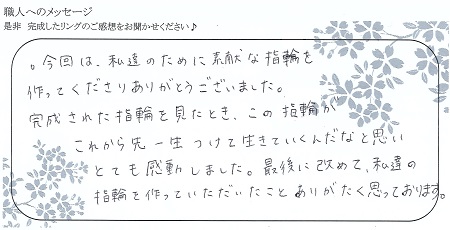 職人へのメッセージ
是非 完成したリングのご感想をお聞かせください♪
。今回は、私達のために素敵な指輪を
作ってくださりありがとうございました。
完成された指輪を見たとき、この指輪が
これから先一生つけて生きていくんだなと思い
とても感動しました。最後に改めて、私達の
指輪を作っていただいたことありがたく思っております。